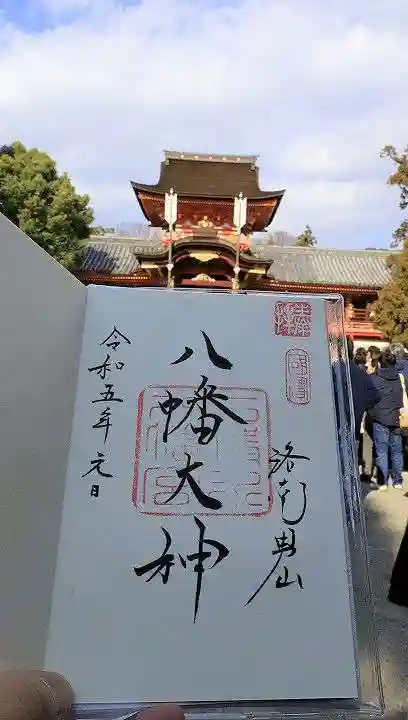 洛南男山
八幡大神
令和五年 元日